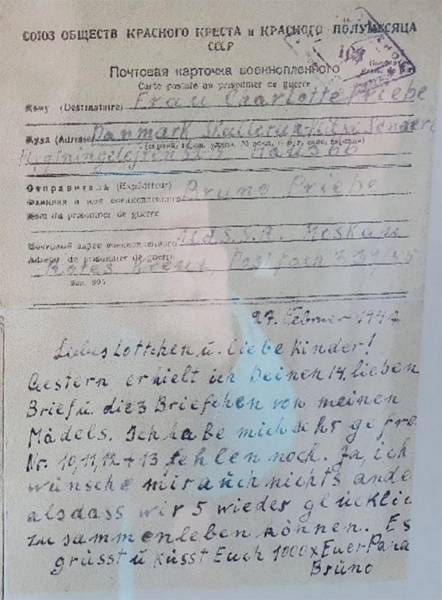 СОЮЗ ОБЩЕСТВ КРАСНОГО КРЕСТА и КРАСНОГО ПОЛУМЕСЯЦА
СССР
Почтовая карточка военнопленного
Carte postale au prisonnier de guerre
Кому (Destinataire) Frau Charlotte Priebe
Куда (Adresse) Danmark
Haus 66
Отправитель (Expéditeur) Bruno Priebe
Фамилия и имя военнопленного
Nom du prisonnier de guerre
Почтовый адрес военнопленного U.d.S.S.R. Moskau
Adresse du prisonnier de guerre
Rotes Kreuz, Postfach
27. Februar 1947
Liebes Lottchen, u. liebe Kinder!
Gestern erhielt ich Deinen 14. lieben
Brief u. die 3 Briefchen von meinen
Mädels. Ich habe mich sehr gefre
Nr. 10, 11, 12 + 13 fehlen noch. Ja, ich
wünsche mir auch nichts ande
als dass wir 5 wieder glücklic
zusammenleben können. Es
grüsst u. küsst Euch 1000 x Euer Papa
Bruno